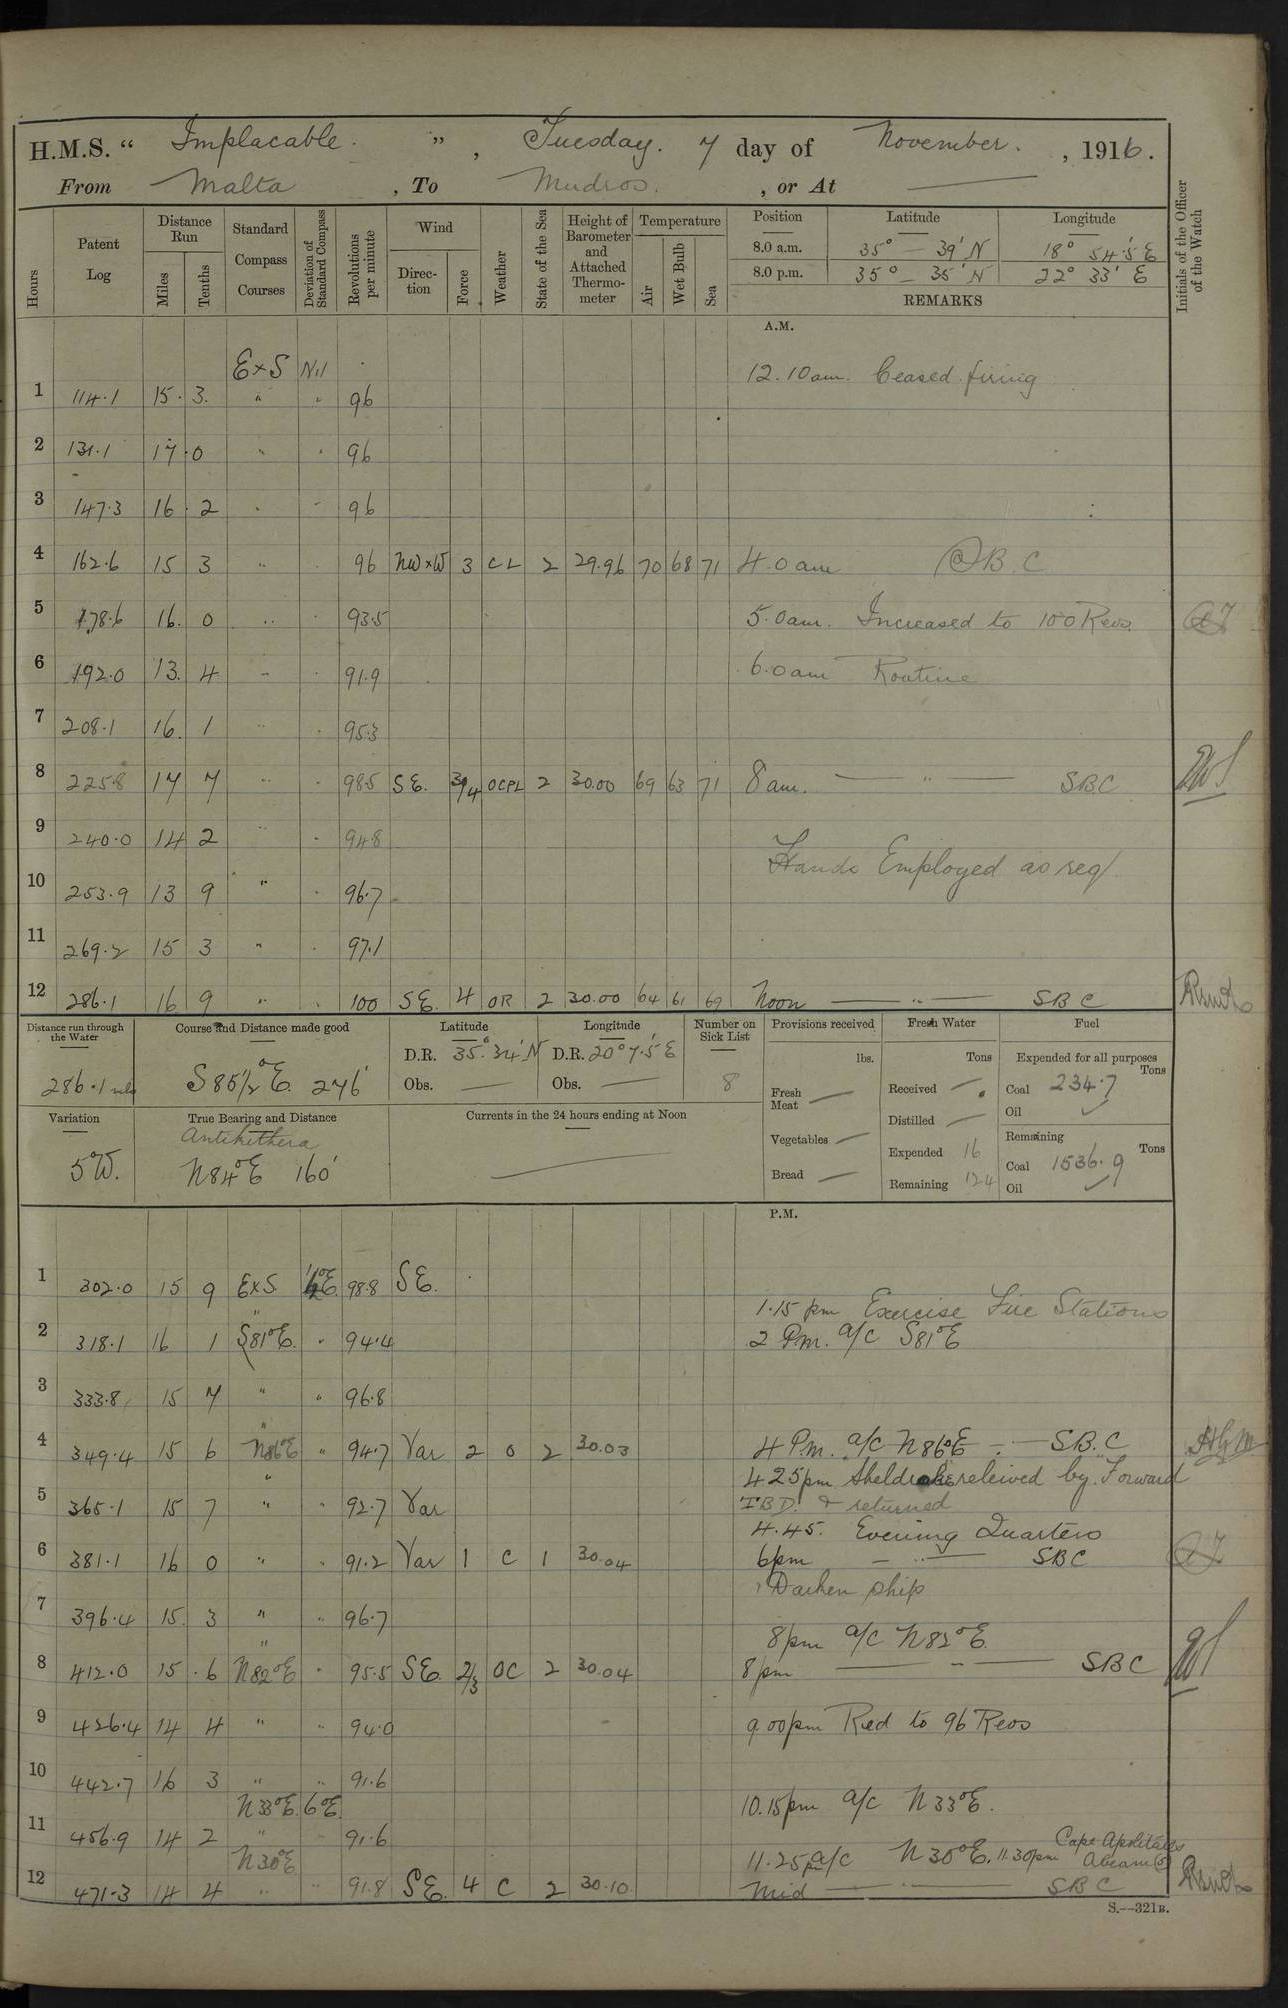 H.M.S. “ Implacable. ”, Tuesday. 7 day of November. , 1916.
From Malta , To Mudros. , or At —
Hours
Patent Log
Distance Run
Miles
Tenths
Standard Compass Courses
Deviation of Standard Compass
Revolutions per minute
Wind
Direction
Force
Weather
State of the Sea
Height of Barometer and Attached Thermometer
Temperature
Air
Wet Bulb
Sea
Position Latitude Longitude
8.0 a.m. 35° - 39' N 18° 54'.5 E
8.0 p.m. 35° - 35' N 22° 33' E
REMARKS
Initials of the Officer of the Watch
A.M.
E x S Nil 12.10 am. Ceased firing
1 114.1 15. 3. " " 96
2 131.1 17.0 " " 96
3 147.3 16 2 " " 96
4 162.6 15 3 " 96 NW x W 3 C L 2 29.96 70 68 71 4.0 am B. C
5 178.6 16. 0 " 93.5 5.0 am. Increased to 100 Revs.
6 192.0 13. 4 " 91.9 6.0 am Routine
7 208.1 16. 1 " 95.3
8 225.8 17 7 " 98.5 SE. 3/4 OCPL 2 30.00 69 63 71 8 am. — " — SBC
9 240.0 14 2 " 94.8
Hands Employed as req.
10 253.9 13 9 " 96.7
11 269.2 15 3 " 97.1
12 286.1 16 9 " 100 SE. 4 OR 2 30.00 64 61 69 Noon — " — SBC
Distance run through the Water
286.1 mls
Course and Distance made good
S 85 1/2 °E. 276'
Latitude
D.R. 35° 34' N
Obs. —
Longitude
D.R. 20° 7'.5 E
Obs. —
Number on Sick List
8
Provisions received
lbs.
Fresh Meat —
Vegetables —
Bread —
Fresh Water
Tons
Received —
Distilled —
Expended 16
Remaining 124
Fuel
Expended for all purposes
Tons
Coal 234.7
Oil
Remaining
Tons
Coal 1536.9
Oil
Variation
5°W.
True Bearing and Distance
Antikithera
N84°E 160'
Currents in the 24 hours ending at Noon
P.M.
1 302.0 15 9 ExS. 98.8 SE.
1.15 pm Exercise Fire Stations
2 318.1 16 1 S81°E. " 94.4 2 Pm. a/c S81°E
3 333.8 15 7 " " 96.8
4 349.4 15 6 N86°E " 94.7 Var 2 O 2 30.03 4 P.m. a/c N86°E — SB.C
4 25 pm Sheldrake releived by "Forward
5 365.1 15 7 " " 92.7 Var T.B.D. & returned
4.45. Evening Quarters
6 381.1 16 0 " " 91.2 Var 1 C 1 30.04 6 pm — " — SBC
Darken ship
7 396.4 15. 3 " " 96.7
8 pm a/c N82°E.
8 412.0 15. 6 N82°E " 95.5 SE. 2/3 OC 2 30.04 8 pm — " — SBC
9 426.4 14 4 " " 94.0 9.00 pm Red to 96 Revs
10 442.7 16 3 " " 91.6
N33°E. 6°E. 10.15 pm a/c N33°E.
11 456.9 14 2 " 91.6
N30°E 11.25 pm a/c N30°E. 11.30pm Cape Abeam
12 471.3 14 4 " " 91.8 SE. 4 C 2 30.10 Mid — " — SBC
S.—321B.